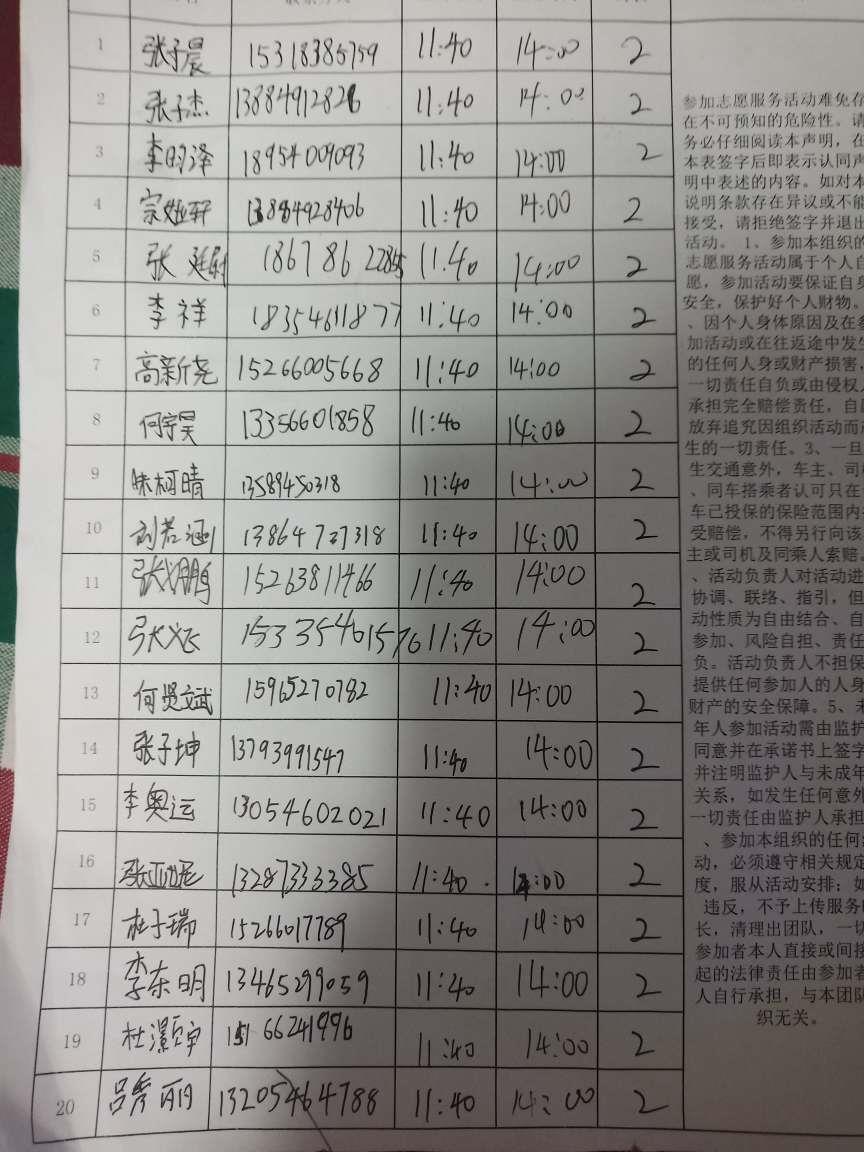 1 张子晨 15318385759 11:40 14:00 2
2 张子杰 13884912826 11:40 14:00 2
3 李昀泽 18954009093 11:40 14:00 2
4 宗娅轩 13884928406 11:40 14:00 2
5 张廷尉 18678622855 11:40 14:00 2
6 李祥 18354611877 11:40 14:00 2
7 高新尧 15266005668 11:40 14:00 2
8 何宇昊 13356601858 11:40 14:00 2
9 柯晴 13589450318 11:40 14:00 2
10 刘若涵 13864737318 11:40 14:00 2
11 鹏 15263811466 11:40 14:00 2
12 张义飞 15335401576 11:40 14:00 2
13 何贤斌 15965270782 11:40 14:00 2
14 张子坤 13793991547 11:40 14:00 2
15 李奥运 13054602021 11:40 14:00 2
16 张亚妮 13287333385 11:40 14:00 2
17 杜子瑞 15266017789 11:40 14:00 2
18 李东明 13465299059 11:40 14:00 2
19 杜灏宇 15166241996 11:40 14:00 2
20 吕秀丽 13205464788 11:40 14:00 2
参加志愿服务活动难免存
在不可预知的危险性。请
务必仔细阅读本声明，在
本表签字后即表示认同声
明中表述的内容。如对本
说明条款存在异议或不能
接受，请拒绝签字并退出
活动。1、参加本组织的
志愿服务活动属于个人自
愿，参加活动要保证自身
安全，保护好个人财物。
、因个人身体原因及在参
加活动或在往返途中发生
的任何人身或财产损害，
一切责任自负或由侵权人
承担完全赔偿责任，自
放弃追究因组织活动而
生的一切责任。3、一旦
生交通意外，车主、司
、同车搭乘者认可只在
车已投保的保险范围内
受赔偿，不得另行向该
主或司机及同乘人索赔
、活动负责人对活动进
协调、联络、指引，但
动性质为自由结合、自
参加、风险自担、责任
负。活动负责人不担保
提供任何参加人的人身
财产的安全保障。5、未
年人参加活动需由监护
同意并在承诺书上签字
并注明监护人与未成年
关系，如发生任何意外
一切责任由监护人承担
、参加本组织的任何
动，必须遵守相关规定
度，服从活动安排；如
违反，不予上传服务
长，清理出团队，一切
参加者本人直接或间接
起的法律责任由参加者
人自行承担，与本团队
织无关。